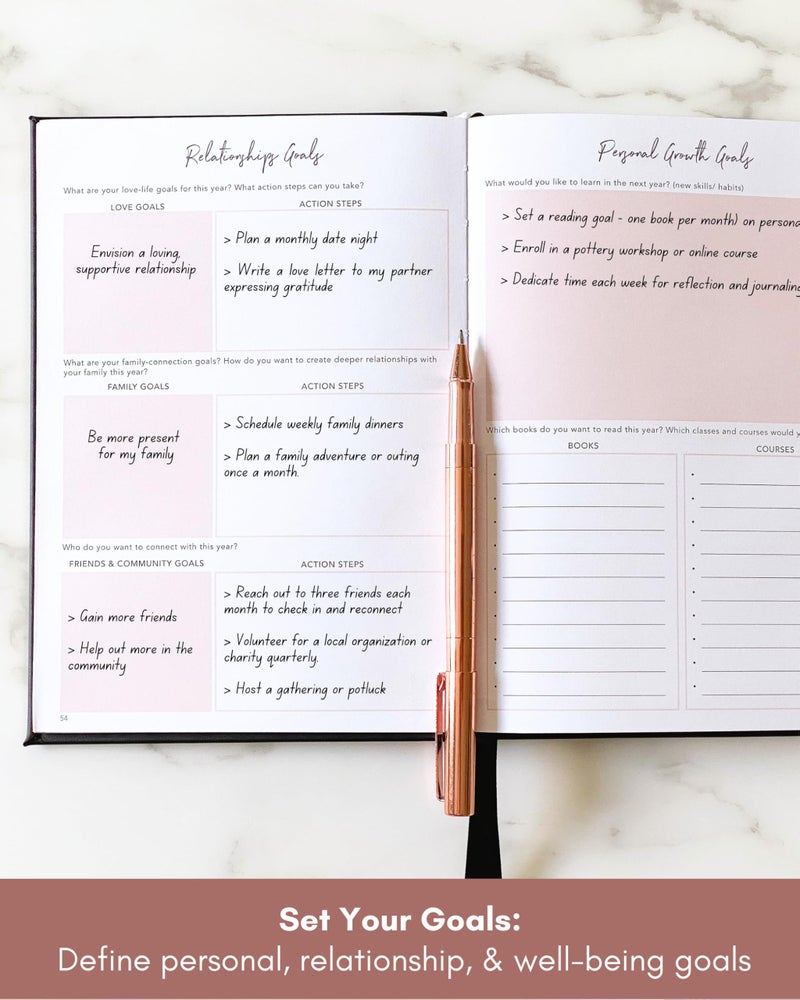 Relationships Goals
What are your love-life goals for this year? What action steps can you take?
LOVE GOALS
ACTION STEPS
Envision a loving,
supportive relationship
> Plan a monthly date night
> Write a love letter to my partner
expressing gratitude
What are your family-connection goals? How do you want to create deeper relationships with
your family this year?
FAMILY GOALS
ACTION STEPS
Be more present
for my family
> Schedule weekly family dinners
> Plan a family adventure or outing
once a month.
Who do you want to connect with this year?
FRIENDS & COMMUNITY GOALS
ACTION STEPS
> Gain more friends
> Help out more in the
community
> Reach out to three friends each
month to check in and reconnect
> Volunteer for a local organization or
charity quarterly.
> Host a gathering or potluck
54
Personal Growth Goals
What would you like to learn in the next year? (new skills/ habits)
> Set a reading goal - one book per month) on persona
> Enroll in a pottery workshop or online course
> Dedicate time each week for reflection and journaling
Which books do you want to read this year? Which classes and courses would y
BOOKS
COURSES
Set Your Goals:
Define personal, relationship, & well-being goals